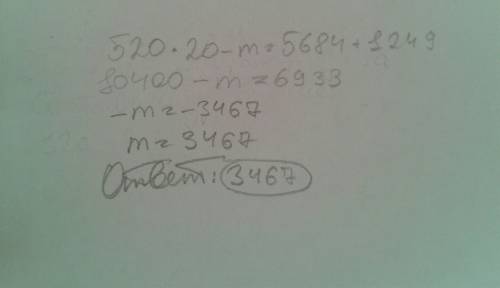 520·20-m=5684+1249
10400-m=6933
-m=-3467
m=3467
Ответ: 3467